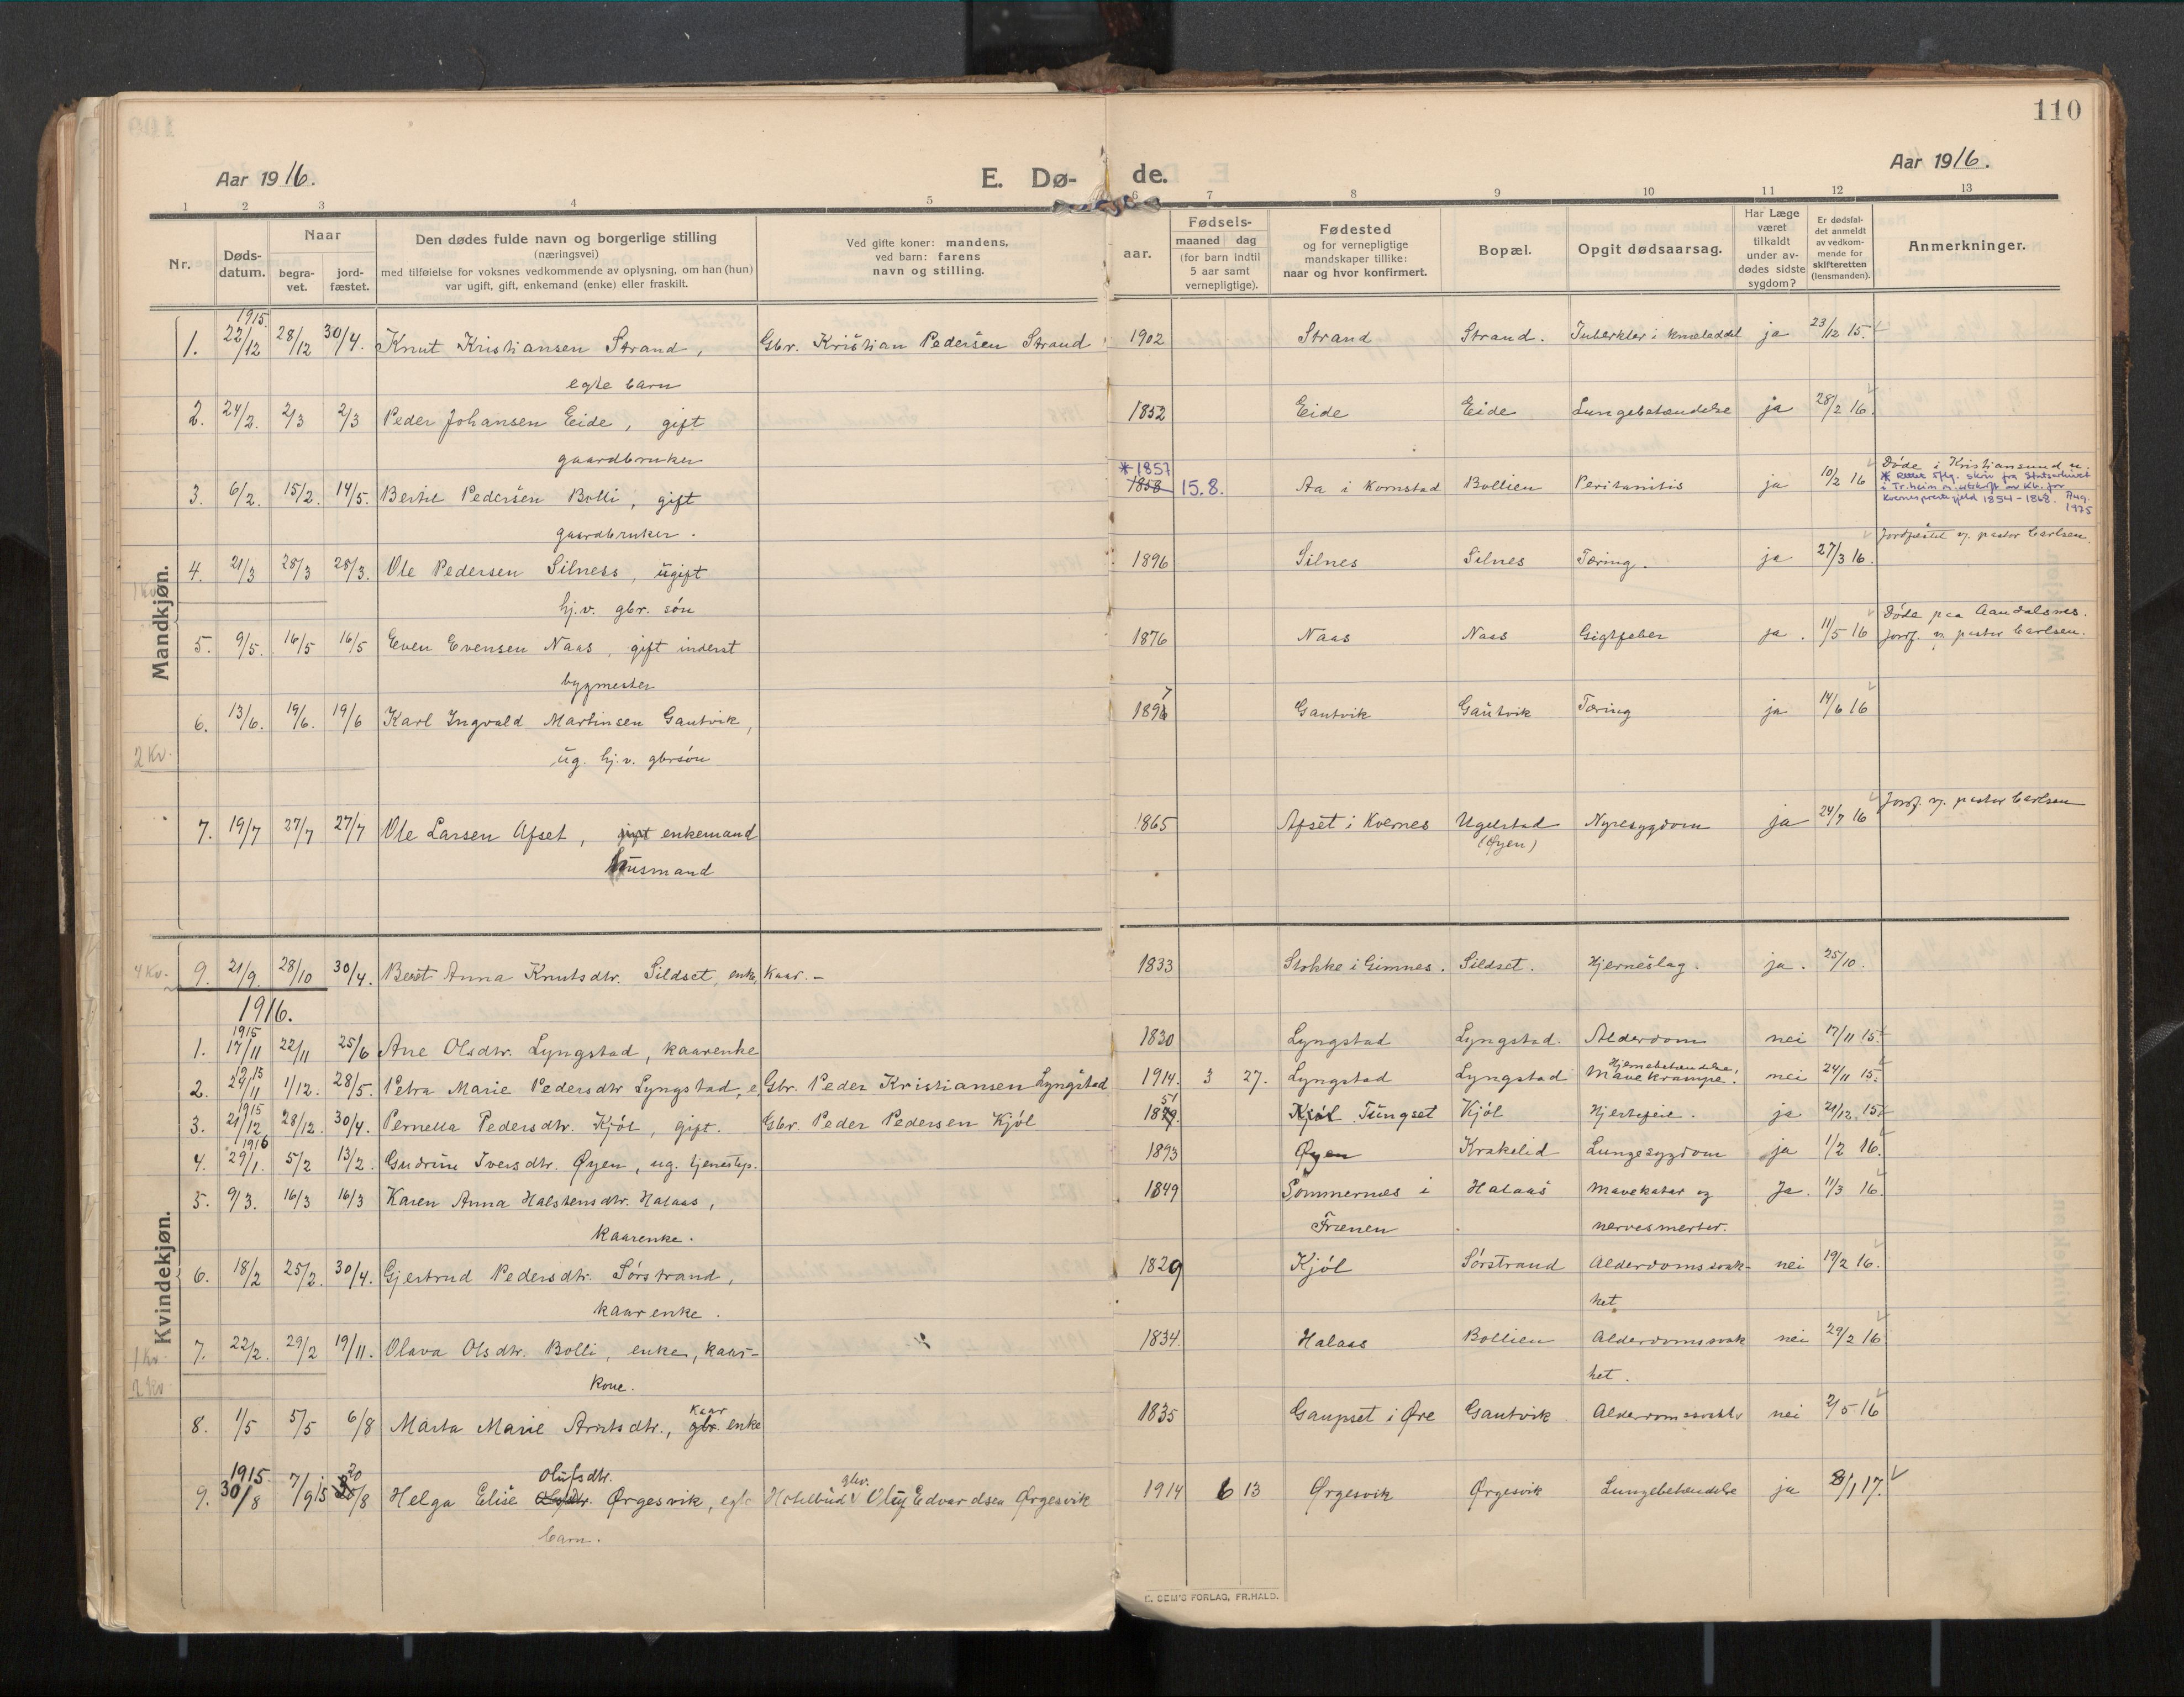 110
Aar 1916.
E. Dø- de.
Aar 1916.
1 2 3 4 5 6 7 8 9 10 11 12 13
Nr.
Døds-
datum.
Naar
begra-
vet.
jord-
fæstet.
Den dødes fulde navn og borgerlige stilling
(næringsvei)
med tilføielse for voksnes vedkommende av oplysning, om han (hun)
var ugift, gift, enkemand (enke) eller fraskilt.
Ved gifte koner: mandens,
ved barn: farens
navn og stilling.
Fødsels-
aar.
maaned dag
(for barn indtil
5 aar samt
vernepligtige).
Fødested
og for vernepligtige
mandskaper tillike:
naar og hvor konfirmert.
Bopæl.
Opgit dødsaarsag.
Har Læge
været
tilkaldt
under av-
dødes sidste
sygdom?
Er dødsfal-
det anmeldt
av vedkom-
mende for
skifteretten
(lensmanden).
Anmerkninger.
Mandkjøn.
1915.
1. 22/12 28/12 30/4. Knut Kristiansen Strand, Gbr. Kristian Pedersen Strand 1902 Strand Strand. Tuberkler i knæleddet ja 23/12 15.
egte barn
2. 24/2. 2/3 2/3 Peder Johansen Eide, gift 1852 Eide Eide Lungebetændelse ja 28/2 16.
gaardbruker
* 1857
3. 6/2. 15/2. 14/5. Bertil Pedersen Bolli, gift 1858 15.8. Aa i Kornstad Bollien Peritonitis ja 10/2 16
Døde i Kristiansund n.
* Rettet iflg. skriv fra Statsarkivet
i Tr.heim m. utskrift av Kb. for
Kvernes prestegjeld 1854-1868. Aug.
1975
gaardbruker.
Jordfæstet v. pastor Carlsen.
4. 21/3 28/3 28/3. Ole Pedersen Silness, ugift 1896 Silnes Silnes Tæring. ja 27/3 16.
1 Kv.
hj.v. gbr. søn
5. 9/5. 16/5 16/5 Even Evensen Naas, gift inderst 1876 Naas Naas Gigtfeber ja. 11/5 16
Døde paa Aandalsnes.
jordf. v. pastor Carlsen.
bygmester
6. 13/6. 19/6. 19/6 Karl Ingvald Martinsen Gautvik, 1897 Gautvik Gautvik Tæring ja 14/6 16
2 Kv.
ug. hj.v. gbrsøn
7. 19/7 27/7 27/7 Ole Larsen Afset, gift enkemand 1865 Afset i Kvernes Ugelstad Nyresygdom ja 24/7 16
(Øyen)
Jordf. v. pastor Carlsen
husmand
Kvindekjøn.
4 Kv. 9. 21/9. 28/10 30/4. Berit Anna Knutsdtr. Sildset, enke, kaar. - 1833 Stokke i Gimnes. Sildset. Hjerneslag. ja. 25/10.
1916.
1915
1. 17/11 22/11 25/6 Ane Olsdtr. Lyngstad, kaarenke 1830 Lyngstad Lyngstad. Alderdom nei 17/11 15.
1915
2. 24/11 1/12. 28/5. Petra Marie Pedersdtr Lyngstad, e. Gbr. Peder Kristiansen Lyngstad 1914. 3 27. Lyngstad Lyngstad Hjernebetændelse, Mavekrampe. nei 24/11 15.
1915
3. 21/12 28/12. 30/4. Pernella Pedersdtr. Kjøl, gift. Gbr. Peder Pedersen Kjøl 1851 Kjøl Tungset Kjøl Hjertefeil. ja 21/12. 15
1916
4. 29/1. 5/2 13/2. Gudrun Iversdtr. Øyen, ug. tjenestep. 1893 Øyen Krakelid Lungesygdom ja 1/2 16.
5. 9/3. 16/3 16/3 Karen Anna Halstensdtr. Halaas, 1849 Sommernes i Halaas Mavekatar og Ja. 11/3 16.
kaarenke. Frænen nervesmerter.
6. 18/2 25/2. 30/4. Gjertrud Pedersdtr. Sørstrand, 1829 Kjøl Sørstrand Alderdomssvak- nei 19/2 16.
kaarenke. het
7. 22/2. 29/2 19/11. Olava Olsdtr. Bolli, enke, kaar- 1834. Halaas Bollien Alderdomssvak nei 29/2 16
1 Kv.
kone. het.
2 Kv
8. 1/5 5/5 6/8 Marta Marie Arntsdtr., gbr. kaar enke 1835 Gaupset i Øre Gautvik Alderdomssvakh. nei 2/5 16
1915
9. 30/8 7/9 15 20/8 Helga Elise Olufsdtr. Ørgesvik, egte Hotelbud v glev. Oluf Edvardsen Ørgesvik 1914 6 13 Ørgesvik Ørgesvik Lungebetændelse ja 8/1 17.
barn.
SEM'S FORLAG, FR.HALD.